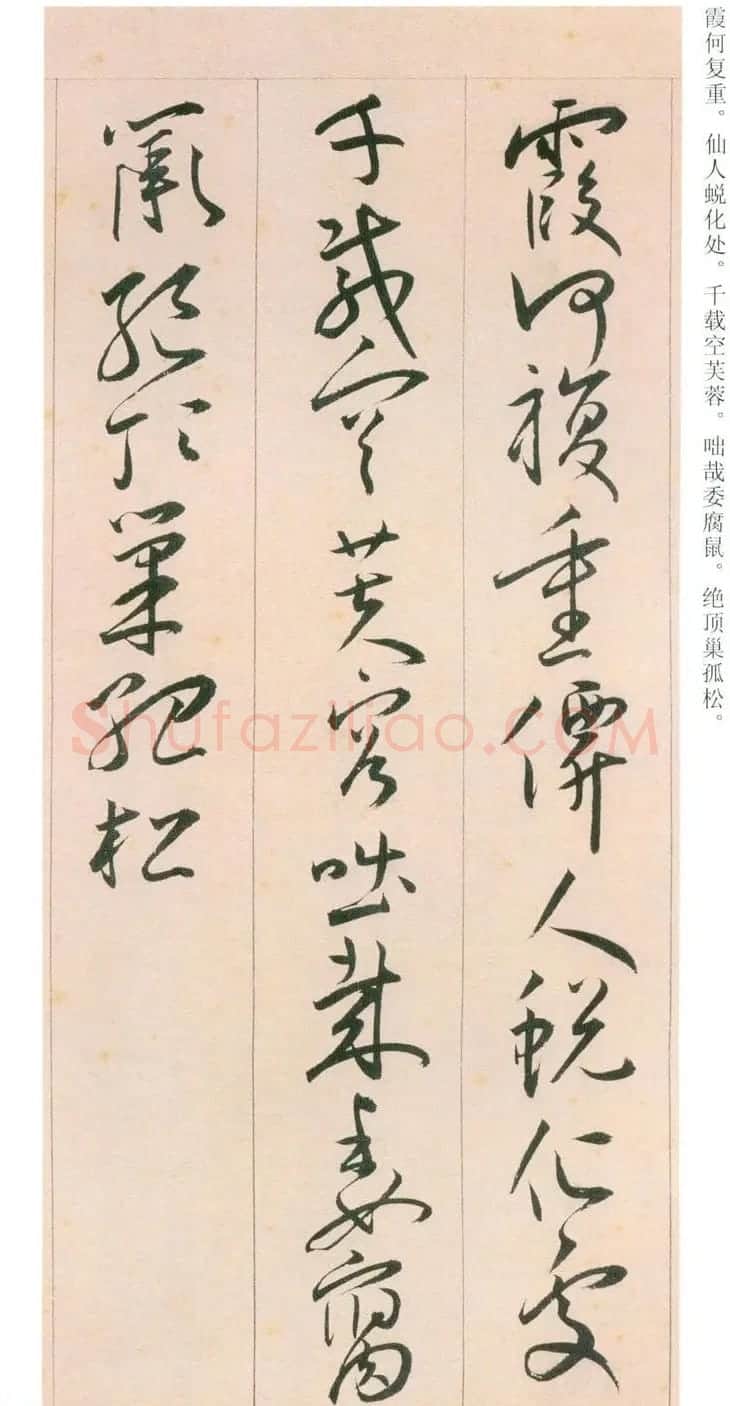 霞何复重。仙人蜕化处。千载空芙蓉。咄哉委腐鼠。绝顶巢孤松。
霞何複重僊人蛻化處
千載空芙容咄哉委腐
鼠絕頂巢孤松
Shufaziliao.com